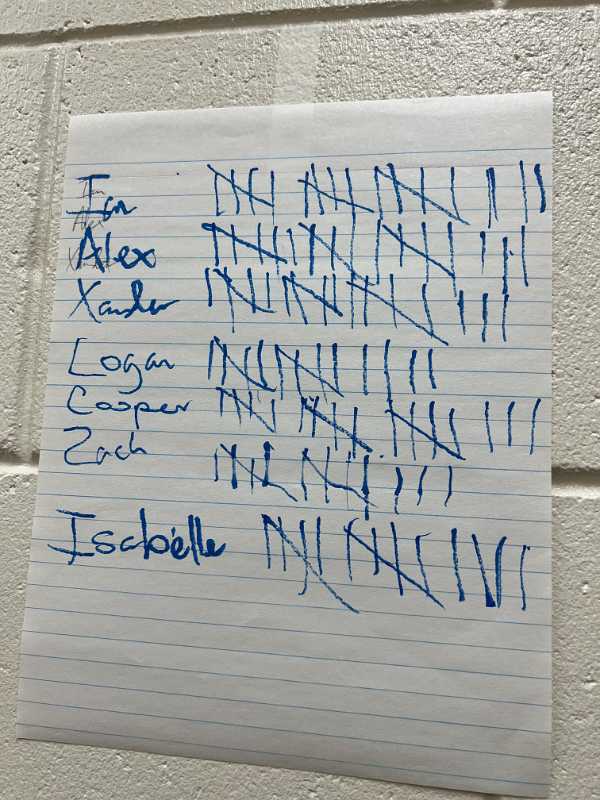 Ian
Alex
Xander
Logan
Cooper
Zach
Isabelle